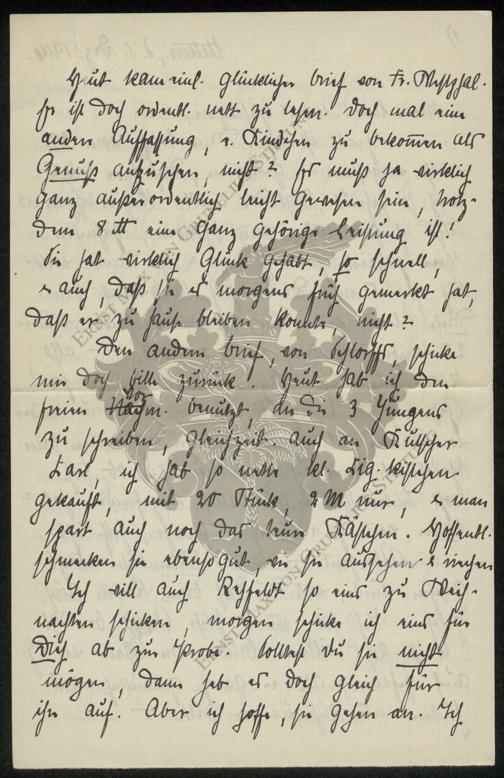 Heut kam einl. glücklicher Brief von Fr. Westphal.
Es ist doch ordentl. nett zu lesen. Doch mal eine
andere Auffassung, e. Kindchen zu bekommen als
Genuß anzusehen, nicht? Es muß ja wirklich
ganz außerordentlich leicht gewesen sein, trotz-
dem 8 ℔ eine ganz gehörige Leistung ist!
Sie hat wirklich Glück gehabt, so schnell,
& auch, daß sie es morgens früh gemerkt hat,
daß er zu Hause bleiben konnte, nicht?
Den andern Brief, von Schlorffs, schicke
mir doch bitte zurück. Heut hab ich den
freien Vorm. benutzt, an die 3 Jungens
zu schreiben, gleichzeit. auch an Kutscher
Karl, ich hab so nette kl. Zig.kistchen
gekauft, mit 20 Stück, 2 M nur, & man
spart auch noch das teure Kästchen. Hoffentl.
schmecken sie ebenso gut wie sie aussehen & riechen
Ich will auch Rehfeldt so eins zu Weih-
nachten schicken, morgen schicke ich eins für
Dich ab zur Probe. Solltest Du sie nicht
mögen, dann heb es doch gleich für
ihn auf. Aber ich hoffe, sie gehen an. Ich
ERNST MAX VON GRUNELIUS-STIFTUNG
ERNST MAX VON GRUNELIUS-STIFTUNG